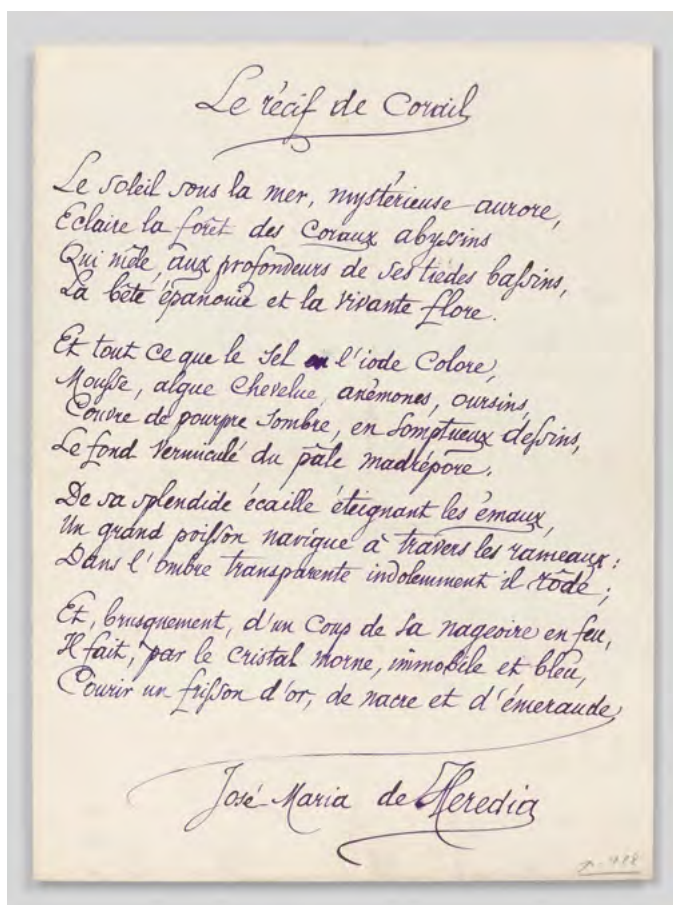 Le récif de Corail
Le soleil sous la mer, mystérieuse aurore,
Eclaire la forêt des Coraux abyssins
Qui mêle, aux profondeurs de ses tièdes bassins,
La bête épanouie et la vivante flore.
Et tout ce que le Sel ou l'iode Colore,
Mousse, algue Chevelue, anémones, oursins,
Couvre de pourpre Sombre, en Somptueux dessins,
Le fond Vermiculé du pâle madrépore.
De sa splendide écaille éteignant les émaux,
Un grand poisson navigue à travers les rameaux :
Dans l'ombre transparente indolemment il rôde ;
Et, brusquement, d'un Coup de Sa nageoire en feu,
Il fait, par le Cristal morne, immobile et bleu,
Courir un frisson d'or, de nacre et d'émeraude
José-Maria de Heredia